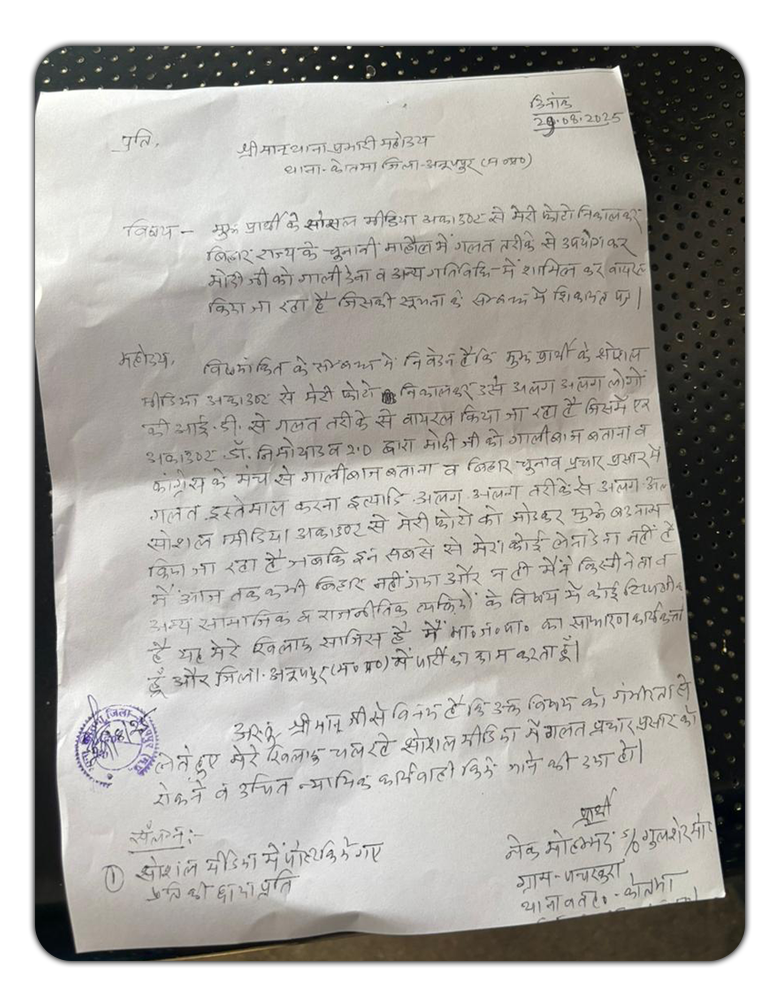 दिनांक
29.08.2025
प्रति,
श्रीमान थाना प्रभारी महोदय
थाना- कोतमा जिला- अनूपपुर (म०प्र०)
विषय - मुझ प्रार्थी के सोसल मीडिया अकाउण्ट से मेरी फोटो निकालकर
बिहार राज्य के चुनावी माहौल में गलत तरीके से उपयोग कर
मोदी जी को गाली देना व अन्य गतिविधि में शामिल कर वायरल
किया जा रहा है जिसकी सूचना के सम्बन्ध में शिकायत पत्र।
महोदय,
विषयांकित के सम्बन्ध में निवेदन है कि मुझ प्रार्थी के सोशल
मीडिया अकाउण्ट से मेरी फोटो निकालकर उसे अलग अलग लोगों
की आई.डी. से गलत तरीके से वायरल किया जा रहा है जिसमें एक
अकाउण्ट डॉ. निमो यादव 2.0 द्वारा मोदी जी को गालीबाज बताना व
कांग्रेस के मंच से गालीबाज बताना व बिहार चुनाव प्रचार प्रसार में
गलत इस्तेमाल करना इत्यादि अलग अलग तरीके से अलग अलग
सोशल मीडिया अकाउण्ट से मेरी फोटो को जोडकर मुझे बदनाम
किया जा रहा है जबकि इन सबसे से मेरा कोई लेना देना नहीं है
में आज तक कभी बिहार नहीं गया और न ही मैंने किसी नेता व
अन्य सामाजिक व राजनीतिक व्यक्तियों के विषय में कोई टिप्पणी की
है यह मेरे खिलाफ साजिस है मैं भा०ज०पा० का साधारण कार्यकर्ता
हूँ और जिला- अनूपपुर (म०प्र०) में पार्टी का काम करता हूँ।
अतः श्रीमान जी से विनय है कि उक्त विषय को गंभीरता से
लेते हुए मेरे खिलाफ चल रहे सोशल मीडिया में गलत प्रचार प्रसार को
रोकने व उचित न्यायिक कार्यवाही किये जाने की कृपा हो।
प्रार्थी
संलग्न :-
नेक मोहम्मद s/o गुलशेर मो०
① सोशल मीडिया में पोस्ट किये गए
ग्राम-
प्रति की छाया प्रति
थाना व तह०- कोतमा